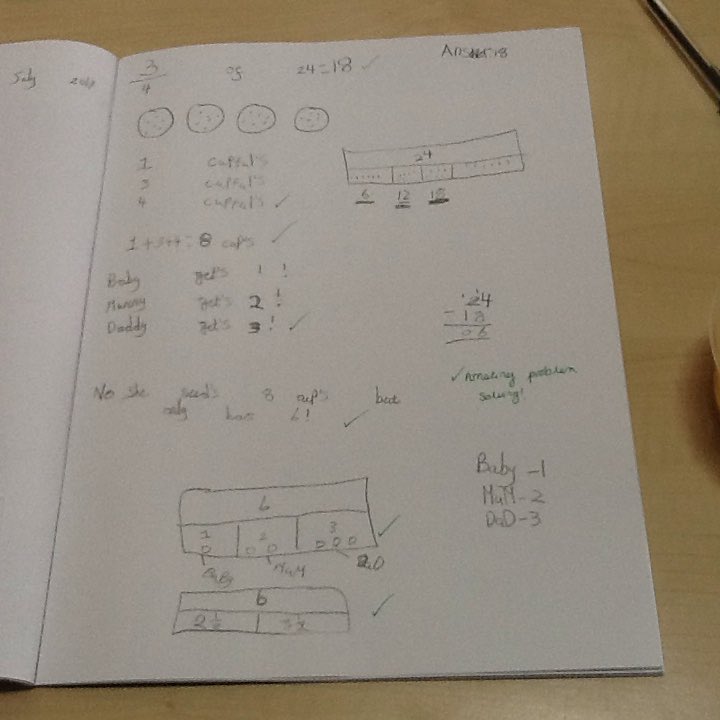 July
3/4 of 24=18 ✓
Answer 18
24
6 12 18
1 cupful's
3 cupful's
4 cupful's ✓
1+3+4= 8 cup's ✓
Baby get's 1!
Mummy get's 2!
Daddy get's 3! ✓
24
-18
06
✓ Amazing problem
solving!
No she need's 8 cup's but
only has 6! ✓
Baby -1
MuM-2
DaD-3
6
1 2 3
Baby MuM DaD
6
2½ 3½